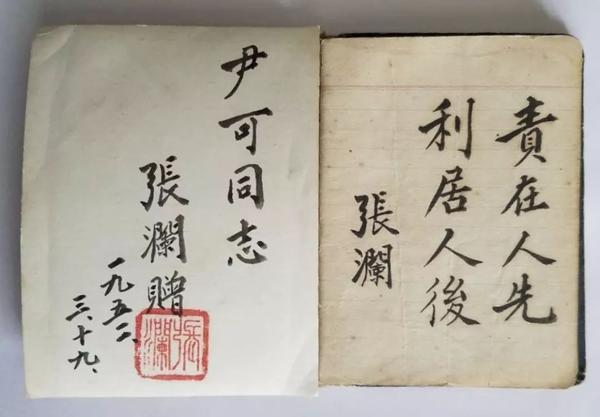 責在人先
利居人後
張瀾
尹可同志
張瀾贈
一九五二、
三、十九、
張瀾